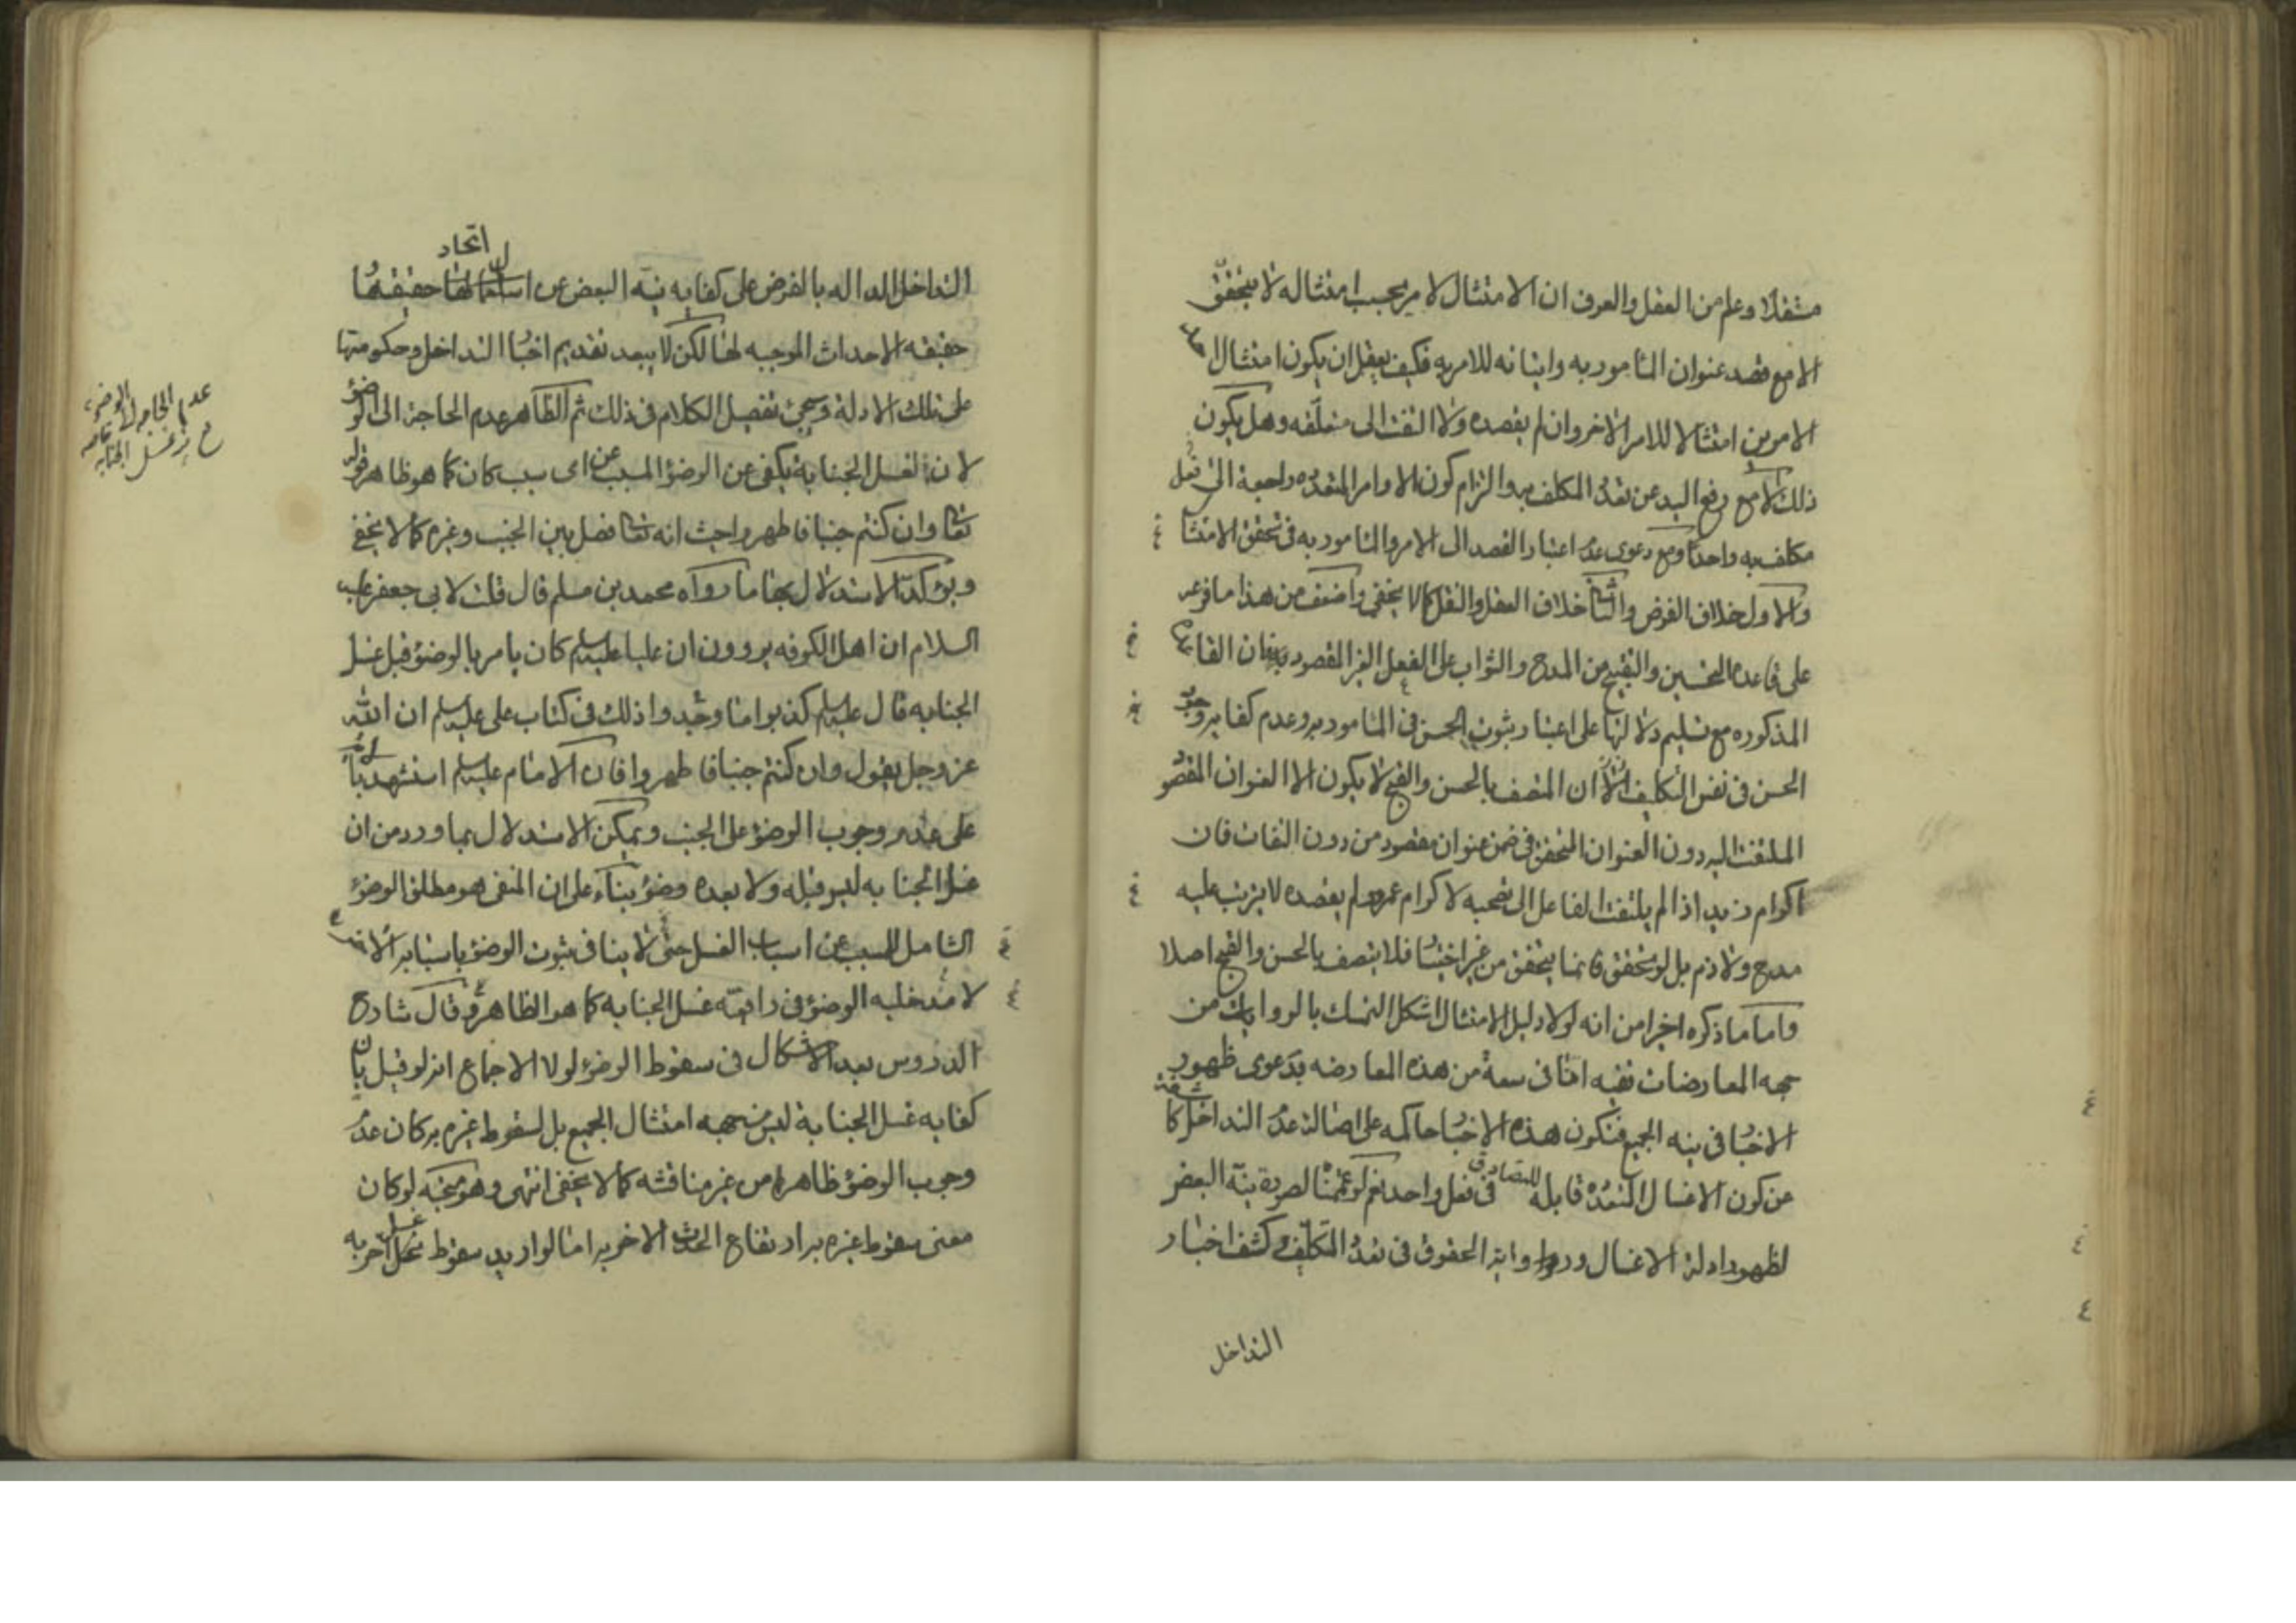 مستقلا وعلم من العقل والعرف ان الامتثال لامر يجب امتثاله لا يتحقق
الا مع قصد عنوان المامور به واتيانه للامر به فكيف يعقل ان يكون امتثال احد
الامرين امتثالا للامر الاخر وان لم يقصده ولا التفت الى متعلقه وهل يكون
ذلك الا مع رفع اليد عن تعدد المكلف به والتزام كون الاوامر المتعدده راجعة الى فعل
مكلف به واحد او مع دعوى عدم اعتبار القصد الى الامر والمامور به فى تحقق الامتثا
والاول خلاف الفرض والثانى خلاف العقل والنقل كما لا يخفى واضعف من هذا ما فرعه
على قاعدة التحسين والتقبيح من المدح والثواب على الفعل الغير المقصود بعنوان القاعدة
المذكوره مع تسليم دلالتها على اعتبار ثبوت الحسن فى المامور به وعدم كفاية وجود
الحسن فى نفس التكليف الا ان المتصف بالحسن والقبح لا يكون الا العنوان المقصود
الملتفت اليه دون العنوان المتحقق فى ضمن عنوان مقصود من دون التفات فان
اكرام زيد اذا لم يلتفت الفاعل الى تضمنه لاكرام عمرو ولم يقصده لا يترتب عليه
مدح ولا ذم بل لو تحقق فانما يتحقق من غير اختيار فلا يتصف بالحسن والقبح اصلا
واما ما ذكره اخيرا من انه لولا دليل الامتثال اشكل التمسك بالروايات من
جهه المعارضات ففيه انا فى سعة من هذه المعارضه بدعوى ظهور
الاخبار فى نيه الجميع فتكون هذه الاخبار حاكمه على اصالة عدم التداخل كاشفة
عن كون الاغسال المتعدده قابله للتصادق فى فعل واحد نعم لو عممنا لصورة نية البعض
لظهور ادلة الاغسال ورواية الحقوق فى تعدد التكليف وكشف اخبار
التداخل
اتحاد
التداخل الداله بالفرض على كفايه نيه البعض عن حقيقتها و
حقيقه الاحداث الموجبه لها لكن لا يبعد تقديم اخبار التداخل وحكومتها
على تلك الادلة وسيجئ تفصيل الكلام فى ذلك ثم الظاهر عدم الحاجة الى الوضو
لان غسل الجنابة يكفى عن الوضوء المسبب عن اى سبب كان كما هو ظاهر قوله
تعالى وان كنتم جنبا فاطهروا حيث انه تعالى فصل بين الجنب وغيره كما لا يخفى
ويؤكد الاستدلال بها ما رواه محمد بن مسلم قال قلت لابى جعفر عليه
السلام ان اهل الكوفه يروون ان عليا عليه السلم كان يامر بالوضوء قبل غسل
الجنابه قال عليه السلم كذبوا ما وجدوا ذلك فى كتاب على عليه السلم ان الله
عز وجل يقول وان كنتم جنبا فاطهروا فان الامام عليه السلم استشهد بالاية
على عدم وجوب الوضوء على الجنب ويمكن الاستدلال بما ورد من ان
غسل الجنابه ليس قبله ولا بعده وضوء بناء على ان المنفى هو مطلق الوضوء
الشامل للمسبب عن اسباب الغسل حتى لا ينافى ثبوت الوضوء باسبابه الاخر
لا مدخليه الوضوء فى رافعيه غسل الجنابه كما هو الظاهر وقال شارح
الدروس بعد الاشكال فى سقوط الوضوء لولا الاجماع انه لو قيل بان
كفايه غسل الجنابة ليس من جهه امتثال الجميع بل لسقوط غيره به كان عدم
وجوب الوضوء ظاهرا من غير مناقشه كما لا يخفى انتهى وهو متجه لو كان
معنى سقوط غيره به ارتفاع الحدث الاخر به اما لو اريد سقوط غسل اخر به
عدم الحاجة الى الوضوء
مع غسل الجنابه